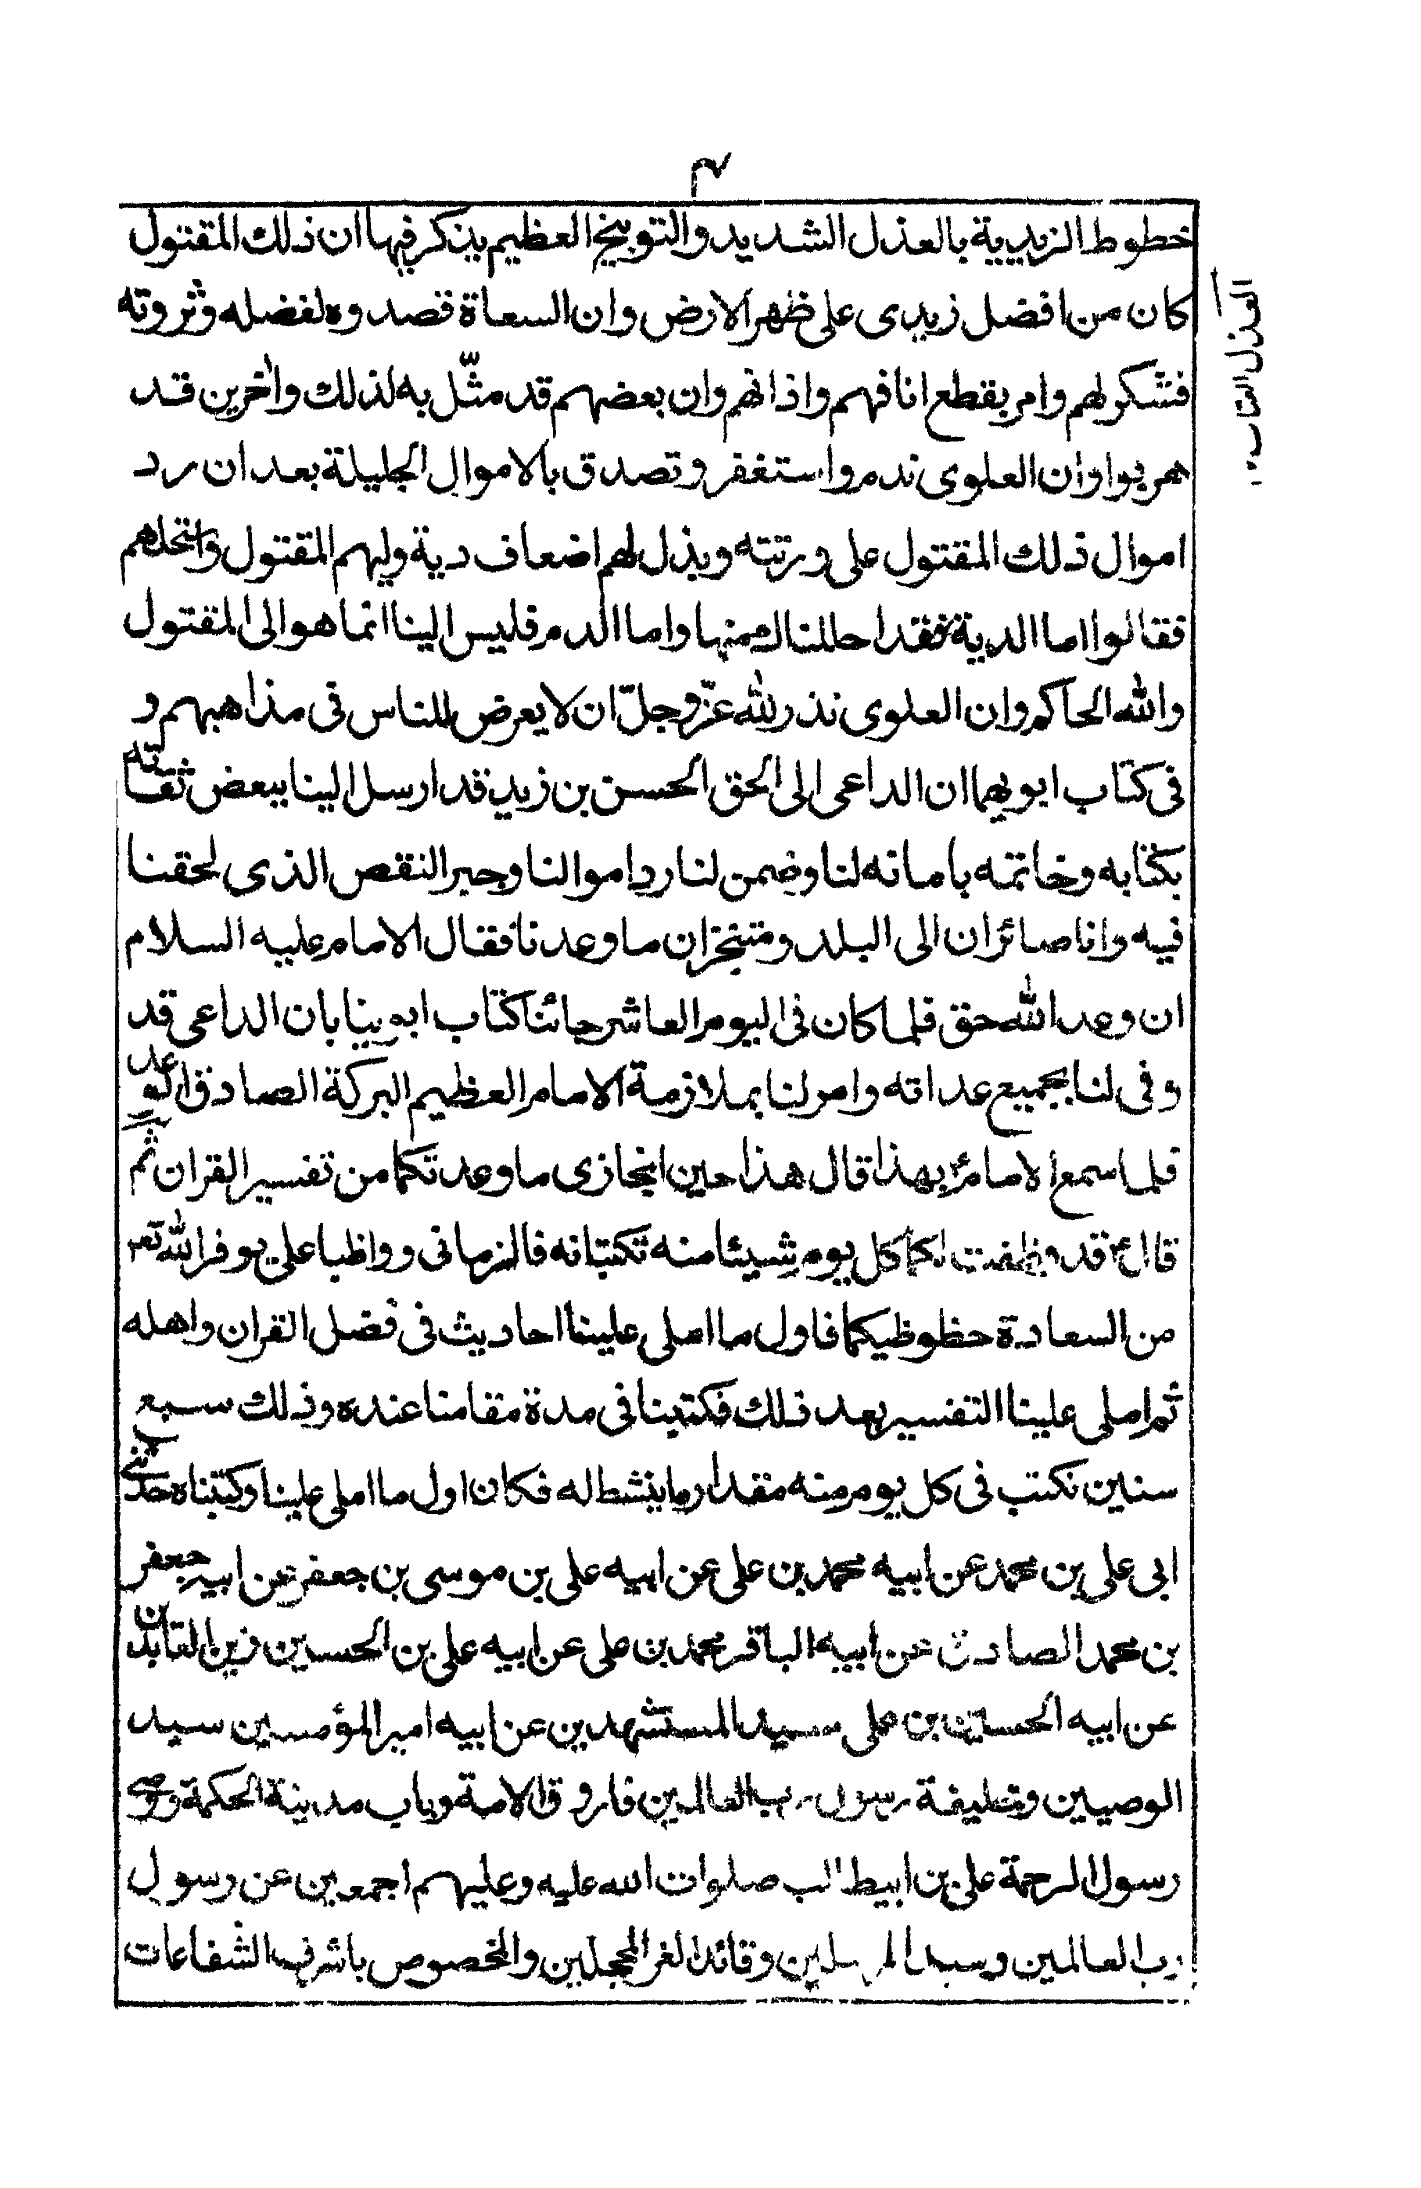 ٣
خطوط الزيدية بالعذل الشديد والتوبيخ العظيم يذكر فيها ان ذلك المقتول
كان من افضل زيدى على ظهر الارض وان السعاة قصدوه لفضله وثروته
فتشكر لهم وامر بقطع انافهم واذانهم وان بعضهم قد مثّل به لذلك واخرين قد
هربوا وان العلوى ندم واستغفر وتصدق بالاموال الجليلة بعد ان رد
اموال ذلك المقتول على ورثته وبذل لهم اضعاف دية وليهم المقتول واستحلهم
فقالوا اما الدية فقد احللناك منها واما الدم فليس الينا انما هو الى المقتول
والله الحاكم وان العلوى نذر لله عزّ وجلّ ان لا يعرض للناس فى مذاهبهم و
فى كتاب ابويهما ان الداعى الى الحق الحسن بن زيد قد ارسل الينا ببعض ثقاته
بكتابه وخاتمه بامانه لنا وضمن لنا رد اموالنا وجبر النقص الذى لحقنا
فيه وانا صائران الى البلد ومتنجزان ما وعدنا فقال الامام عليه السلام
ان وعد الله حق فلما كان فى اليوم العاشر جائنا كتاب ابوينا بان الداعى قد
وفى لنا بجميع عداته وامر لنا بملازمة الامام العظيم البركة الصادق الوعد
فلما سمع الامامؑ بهذا قال هذا حين انجازى ما وعدتكما من تفسير القران ثم
قالؑ قد وظفت لكما كل يوم شيئا منه تكتبانه فالزمانى وواظبا على يوفر الله تعم
من السعادة حظوظيكما فاول ما املى علينا احاديث فى فضل القران واهله
ثم املى علينا التفسير بعد ذلك فكتبنا فى مدة مقامنا عنده وذلك سبع
سنين نكتب فى كل يوم منه مقدار ما ينشط له فكان اول ما املى علينا وكتبناه حدثنى
ابى على بن محمد عن ابيه محمد بن على عن ابيه على بن موسى بن جعفر عن ابيه جعفر
بن محمد الصادق عن ابيه الباقر محمد بن على عن ابيه على بن الحسين زين العابدين
عن ابيه الحسين بن على سيد المستشهدين عن ابيه امير المؤمنين سيد
الوصيين وخليفة رسول رب العالمين فاروق الامة وباب مدينة الحكمة ووصى
رسول الرحمة على بن ابيطالب صلوات الله عليه وعليهم اجمعين عن رسول
رب العالمين وسيد المرسلين وقائد الغر المحجلين والمخصوص باشرف الشفاعات
العذل التاب